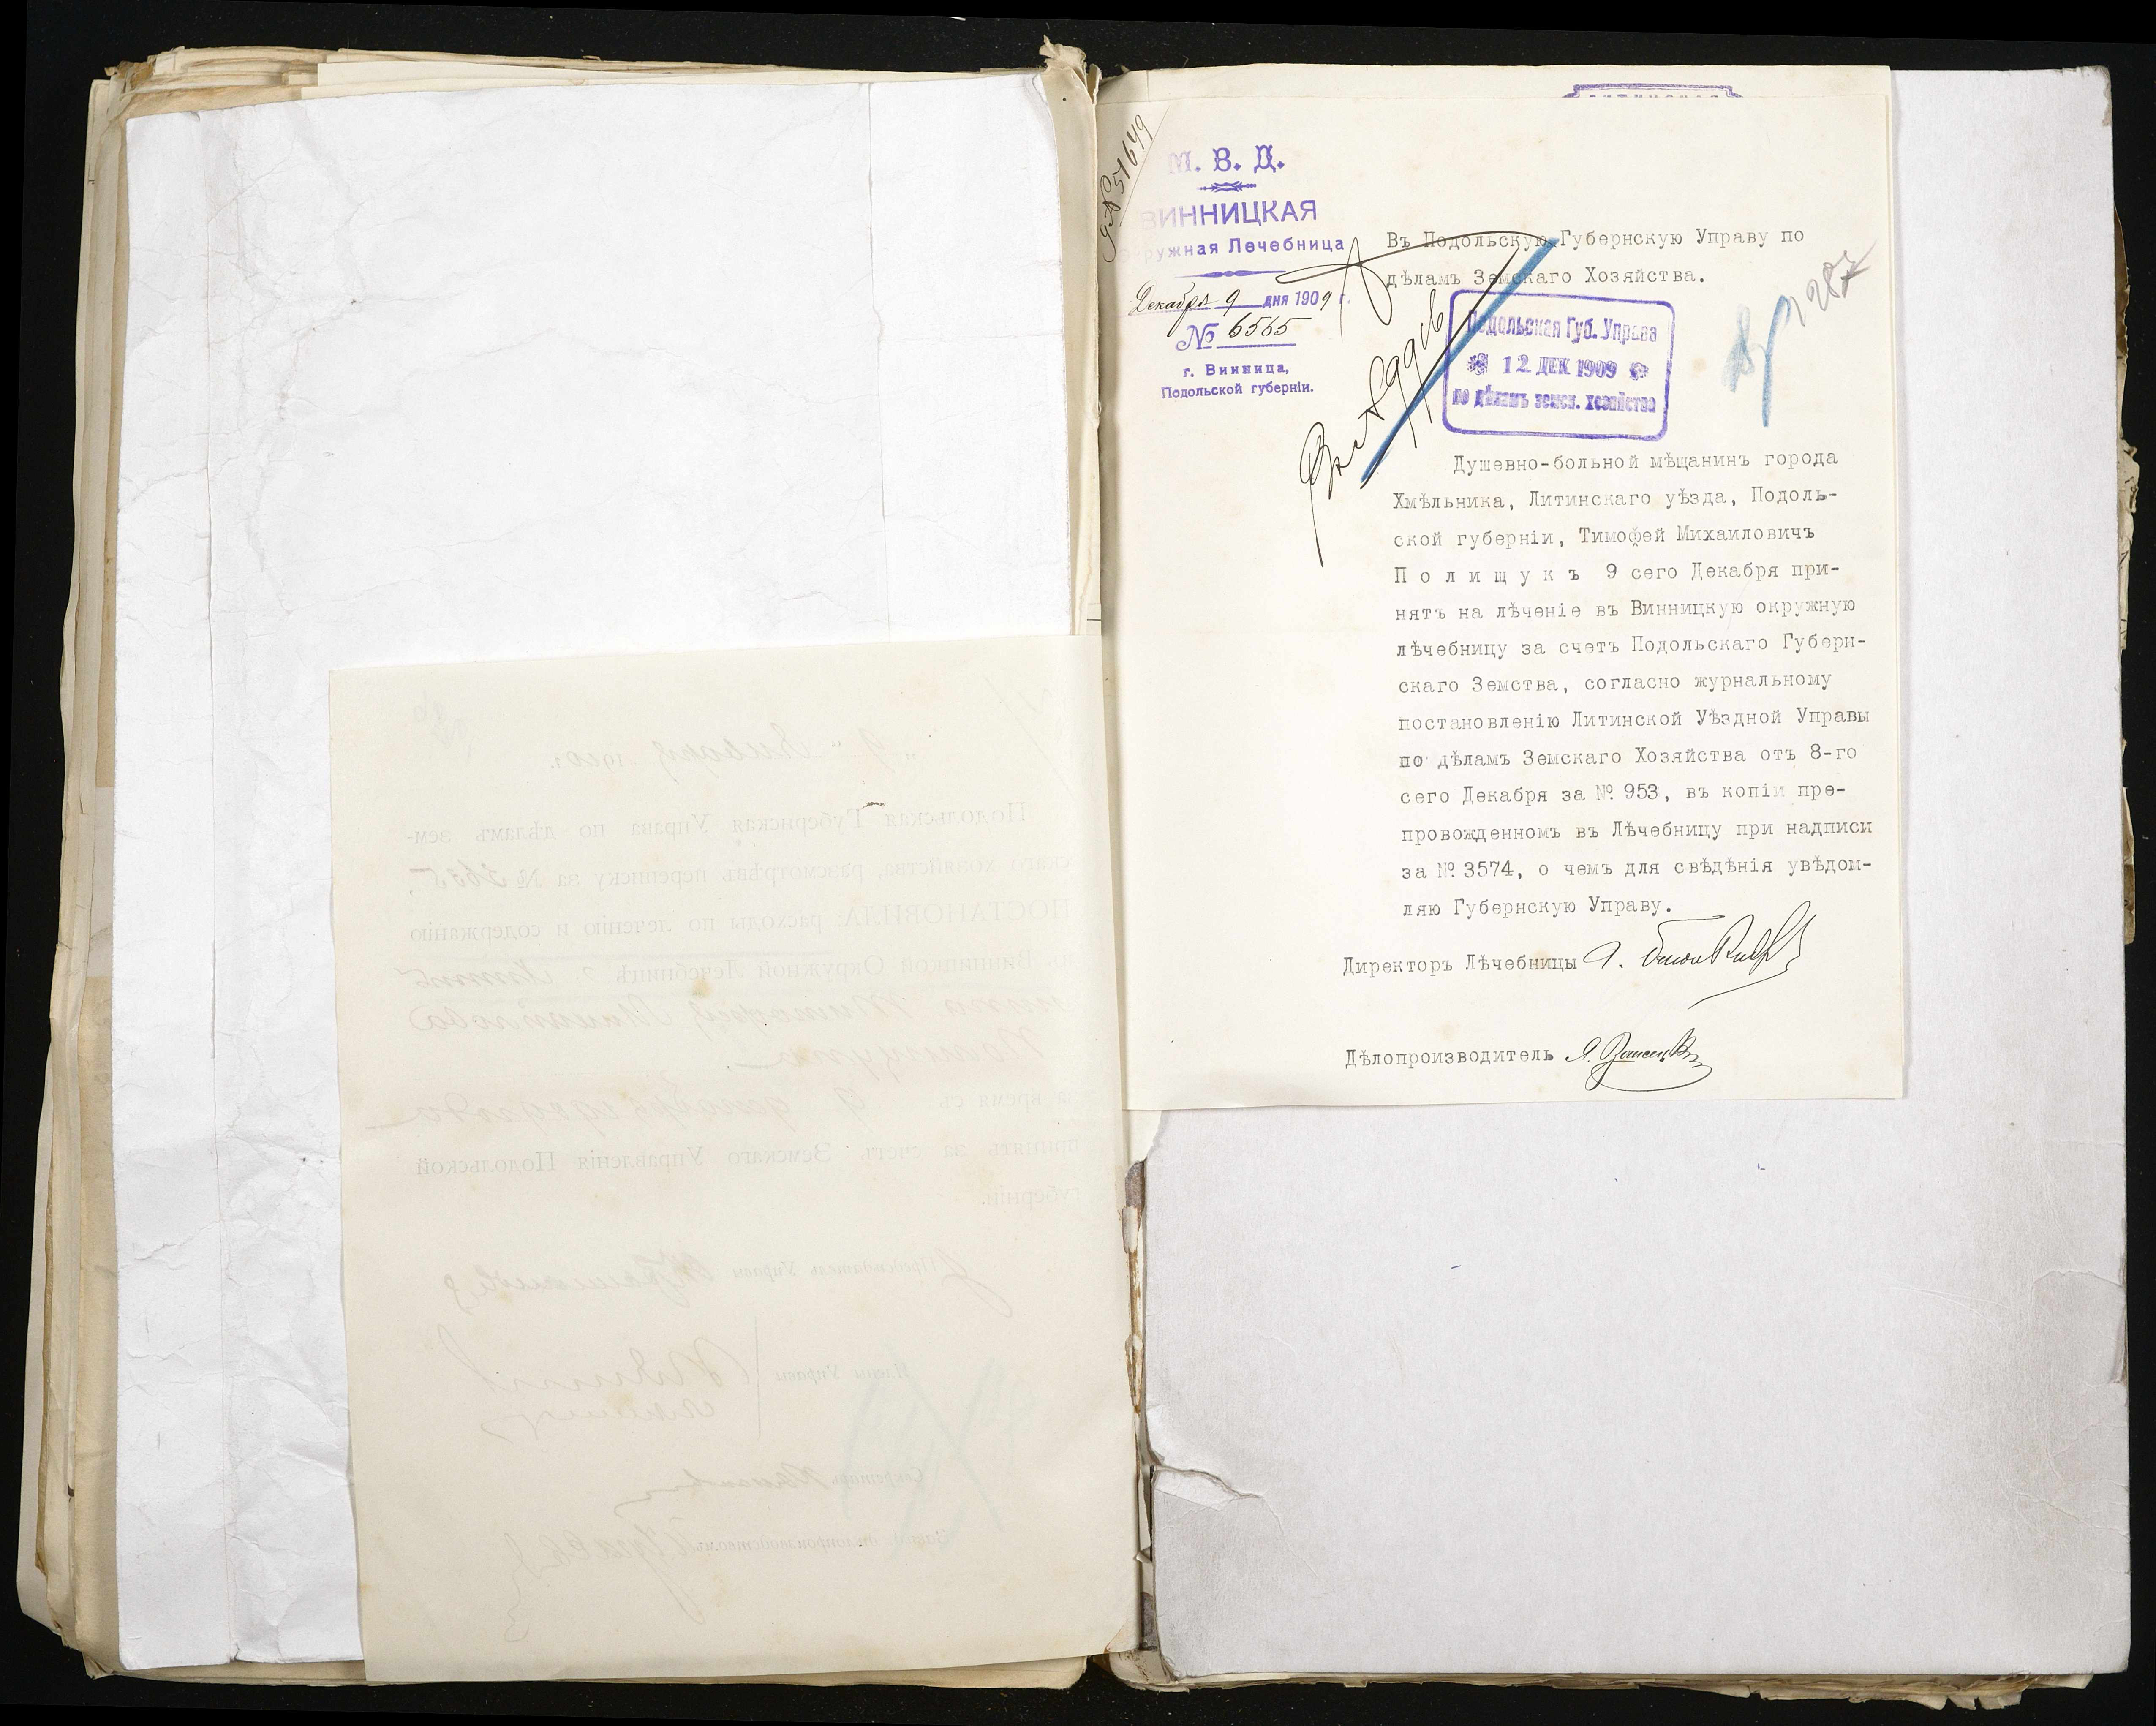 М. В. Д.
ВИННИЦКАЯ
Окружная Лечебница
Декабря 9 дня 1909 г.
№ 6565
г. Винница,
Подольской губерніи.
Въ Подольскую Губернскую Управу по
дѣламъ Земскаго Хозяйства.
Подольская Губ. Управа
12 ДЕК 1909
по дѣламъ земск. хозяйства
Душевно-больной мѣщанинъ города
Хмѣльника, Литинскаго уѣзда, Подоль-
ской губерніи, Тимофей Михаиловичъ
П о л и щ у к ъ 9 сего Декабря при-
нятъ на лѣченіе въ Винницкую окружную
лѣчебницу за счетъ Подольскаго Губерн-
скаго Земства, согласно журнальному
постановленію Литинской Уѣздной Управы
по дѣламъ Земскаго Хозяйства отъ 8-го
сего Декабря за № 953, въ копіи пре-
провожденномъ въ Лѣчебницу при надписи
за № 3574, о чемъ для свѣдѣнія увѣдом-
ляю Губернскую Управу.
Директоръ Лѣчебницы
Дѣлопроизводитель
1910 г.
Подольская Губернская Управа по дѣламъ зем-
скаго хозяйства разсмотрѣвъ переписку за №
ПОСТАНОВИЛА: расходы по леченію и содержанію
въ Винницкой Окружной Лечебницѣ
за время съ 9 декабря 1909 года
принять за счетъ Земскаго Управленія Подольской
губерніи.
Предсѣдатель Управы
Члены Управы
Секретарь